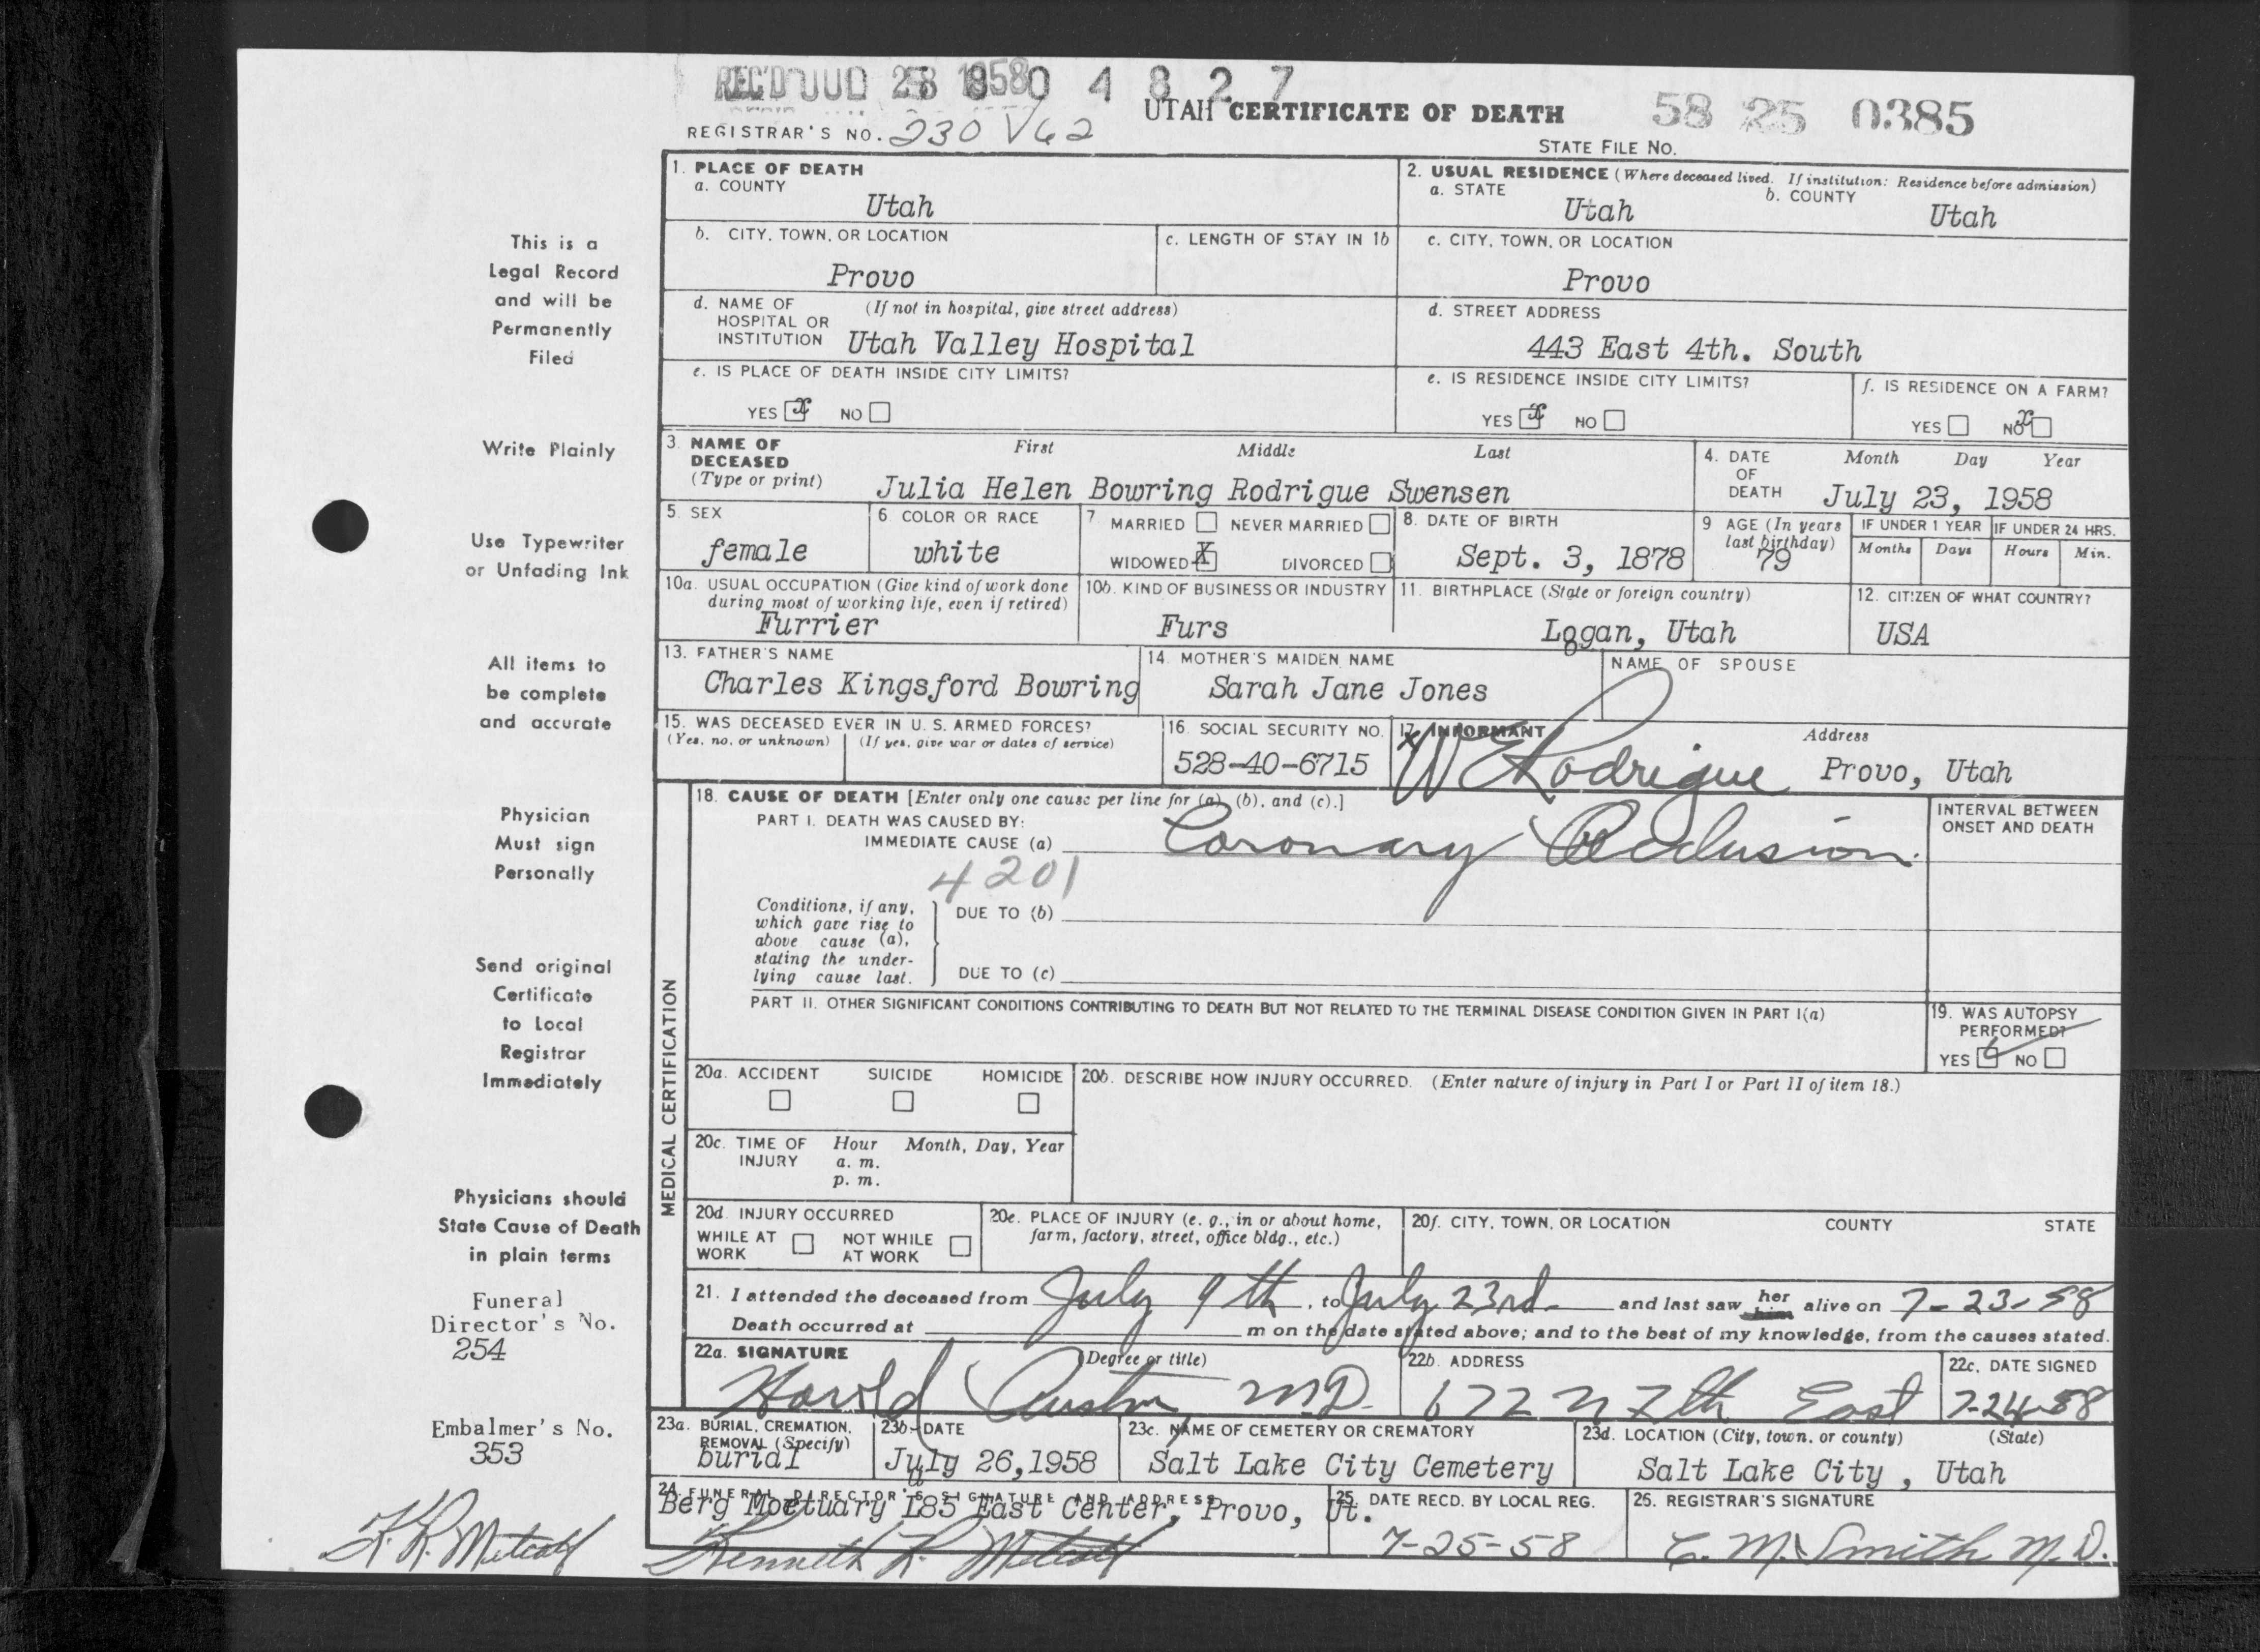 REC'D 1958 0 4 8 2 7
UTAH CERTIFICATE OF DEATH 58 25 0385
REGISTRAR'S NO. 230 V62
STATE FILE NO.
1. PLACE OF DEATH
a. COUNTY
Utah
2. USUAL RESIDENCE (Where deceased lived. If institution: Residence before admission)
a. STATE b. COUNTY
Utah Utah
b. CITY, TOWN, OR LOCATION
Provo
c. LENGTH OF STAY IN 1b
c. CITY, TOWN, OR LOCATION
Provo
d. NAME OF (If not in hospital, give street address)
HOSPITAL OR
INSTITUTION Utah Valley Hospital
d. STREET ADDRESS
443 East 4th. South
e. IS PLACE OF DEATH INSIDE CITY LIMITS?
YES x NO
e. IS RESIDENCE INSIDE CITY LIMITS?
YES x NO
f. IS RESIDENCE ON A FARM?
YES NO x
3. NAME OF First Middle Last
DECEASED
(Type or print) Julia Helen Bowring Rodrigue Swensen
4. DATE Month Day Year
OF
DEATH July 23, 1958
5. SEX
female
6. COLOR OR RACE
white
7 MARRIED NEVER MARRIED
WIDOWED X DIVORCED
8. DATE OF BIRTH
Sept. 3, 1878
9 AGE (In years
last birthday)
79
IF UNDER 1 YEAR IF UNDER 24 HRS.
Months Days Hours Min.
10a. USUAL OCCUPATION (Give kind of work done
during most of working life, even if retired)
Furrier
10b. KIND OF BUSINESS OR INDUSTRY
Furs
11. BIRTHPLACE (State or foreign country)
Logan, Utah
12. CITIZEN OF WHAT COUNTRY?
USA
13. FATHER'S NAME
Charles Kingsford Bowring
14. MOTHER'S MAIDEN NAME
Sarah Jane Jones
NAME OF SPOUSE
15. WAS DECEASED EVER IN U. S. ARMED FORCES?
(Yes, no, or unknown) (If yes, give war or dates of service)
16. SOCIAL SECURITY NO.
528-40-6715
17. INFORMANT Address
x W E Rodrigue Provo, Utah
MEDICAL CERTIFICATION
18. CAUSE OF DEATH [Enter only one cause per line for (a), (b), and (c).]
PART I. DEATH WAS CAUSED BY:
IMMEDIATE CAUSE (a) Coronary Occlusion.
INTERVAL BETWEEN
ONSET AND DEATH
4201
Conditions, if any,
which gave rise to
above cause (a),
stating the under-
lying cause last.
DUE TO (b)
DUE TO (c)
PART II. OTHER SIGNIFICANT CONDITIONS CONTRIBUTING TO DEATH BUT NOT RELATED TO THE TERMINAL DISEASE CONDITION GIVEN IN PART I(a)
19. WAS AUTOPSY
PERFORMED?
YES NO
20a. ACCIDENT SUICIDE HOMICIDE
20b. DESCRIBE HOW INJURY OCCURRED. (Enter nature of injury in Part I or Part II of item 18.)
20c. TIME OF Hour Month, Day, Year
INJURY a. m.
p. m.
20d. INJURY OCCURRED
WHILE AT NOT WHILE
WORK AT WORK
20e. PLACE OF INJURY (e. g., in or about home,
farm, factory, street, office bldg., etc.)
20f. CITY, TOWN, OR LOCATION COUNTY STATE
21. I attended the deceased from July 9th, to July 23rd and last saw her him alive on 7-23-58
Death occurred at m on the date stated above; and to the best of my knowledge, from the causes stated.
22a. SIGNATURE (Degree or title)
Harold Austin M.D.
22b. ADDRESS
672 N 7th East
22c. DATE SIGNED
7-24-58
23a. BURIAL, CREMATION,
REMOVAL (Specify)
burial
23b. DATE
July 26,1958
23c. NAME OF CEMETERY OR CREMATORY
Salt Lake City Cemetery
23d. LOCATION (City, town, or county) (State)
Salt Lake City , Utah
24. FUNERAL DIRECTOR'S SIGNATURE AND ADDRESS
Berg Mortuary 185 East Center, Provo, Ut.
Kenneth R. Metcalf
25. DATE RECD. BY LOCAL REG.
7-25-58
26. REGISTRAR'S SIGNATURE
C. M. Smith M.D.
This is a
Legal Record
and will be
Permanently
Filed
Write Plainly
Use Typewriter
or Unfading Ink
All items to
be complete
and accurate
Physician
Must sign
Personally
Send original
Certificate
to Local
Registrar
Immediately
Physicians should
State Cause of Death
in plain terms
Funeral
Director's No.
254
Embalmer's No.
353
K. R. Metcalf